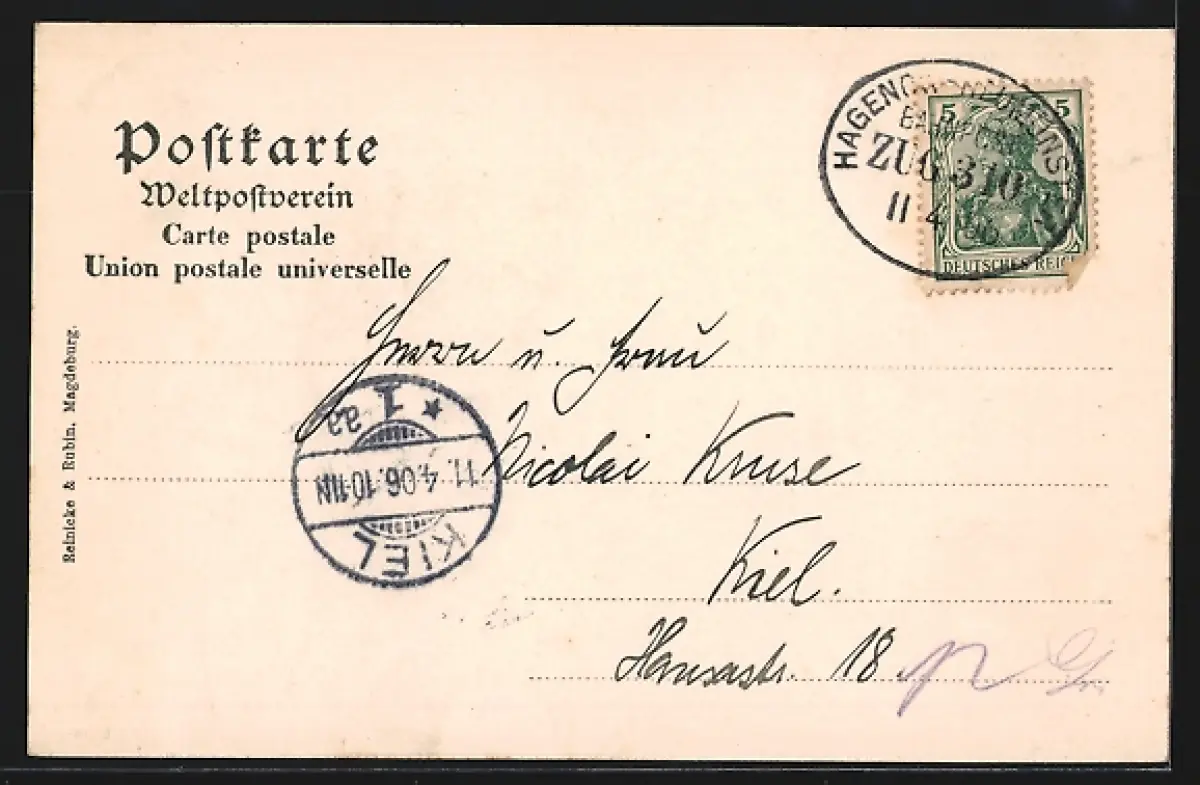 Postkarte
Weltpostverein
Carte postale
Union postale universelle
Reinicke & Rubin, Magdeburg.
HAGENOW
ZUG 310
11 4 06
5 5
DEUTSCHES REICH
Herrn u. Frau
Nicolai Kruse
Kiel.
Hansastr. 18
KIEL
11.4.06.10-11N
* 1 aa